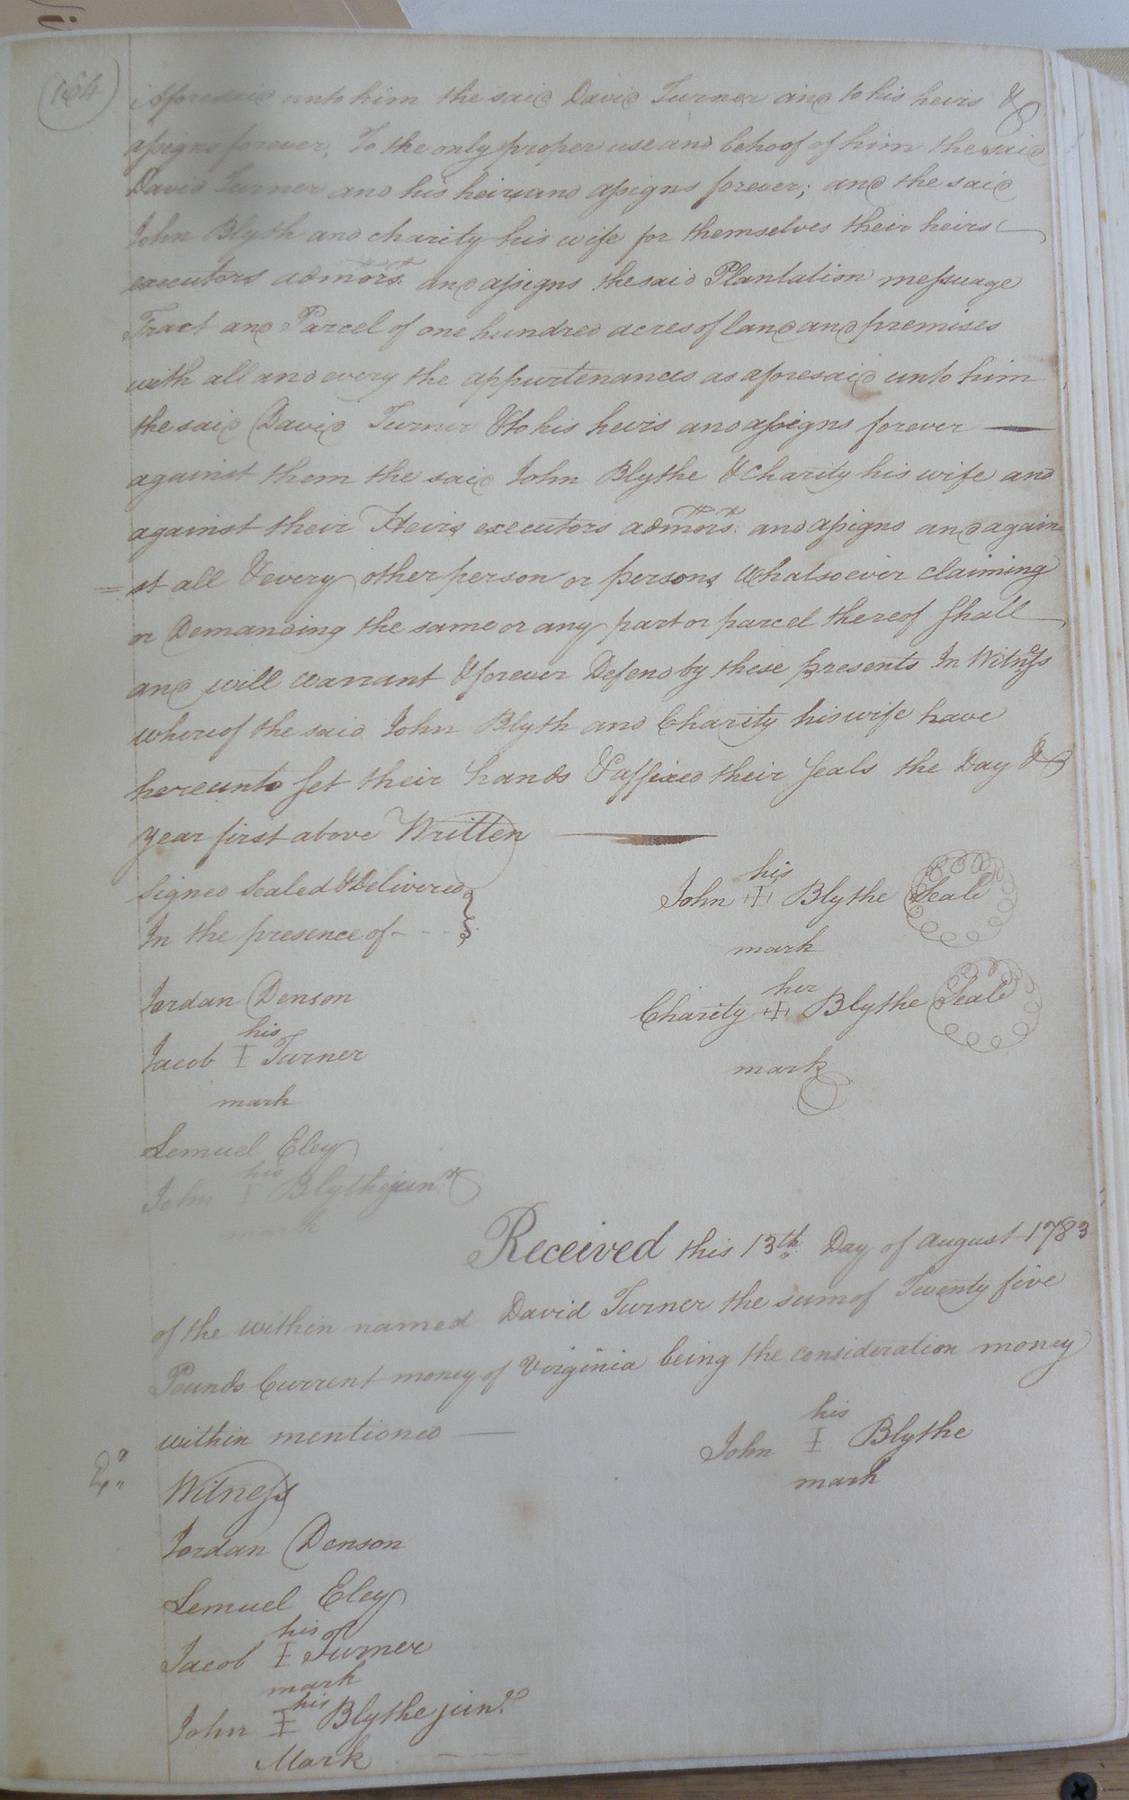 164
aforesaid unto him the said David Turner and to his heirs &
assigns forever, To the only proper use and behoof of him the said
David Turner and his heirs and assigns forever; and the said
John Blyth and charity his wife for themselves their heirs
executors admors. and assigns the said Plantation messuage
Tract and Parcel of one hundred acres of land and premises
with all and every the appurtenances as aforesaid unto him
the said David Turner & to his heirs and assigns forever —
against them the said John Blythe & Charity his wife and
against their Heirs executors admors. and assigns and again
= st all & every other person or persons Whatsoever claiming
or Demanding the same or any part or parcel thereof Shall
and will warrant & forever Defend by these presents In Witness
whereof the said John Blyth and Charity his wife have
hereunto Set their hands & affixed their Seals the Day &
year first above Written —
Signed Sealed & Delivered
In the presence of - - -
his
John I Blythe Seal
mark
her
Charity + Blythe Seal
mark
Jordan Denson
his
Jacob I Turner
mark
Lemuel Eley
his
John I Blythe junr
mark
Received this 13th Day of August 1783
of the within named David Turner the sum of Twenty five
Pounds Current money of Virginia being the consideration money
within mentioned —
his
John I Blythe
mark
Witness
Jordan Denson
Lemuel Eley
his
Jacob I Turner
mark
his
John I Blythe junr
Mark - - -